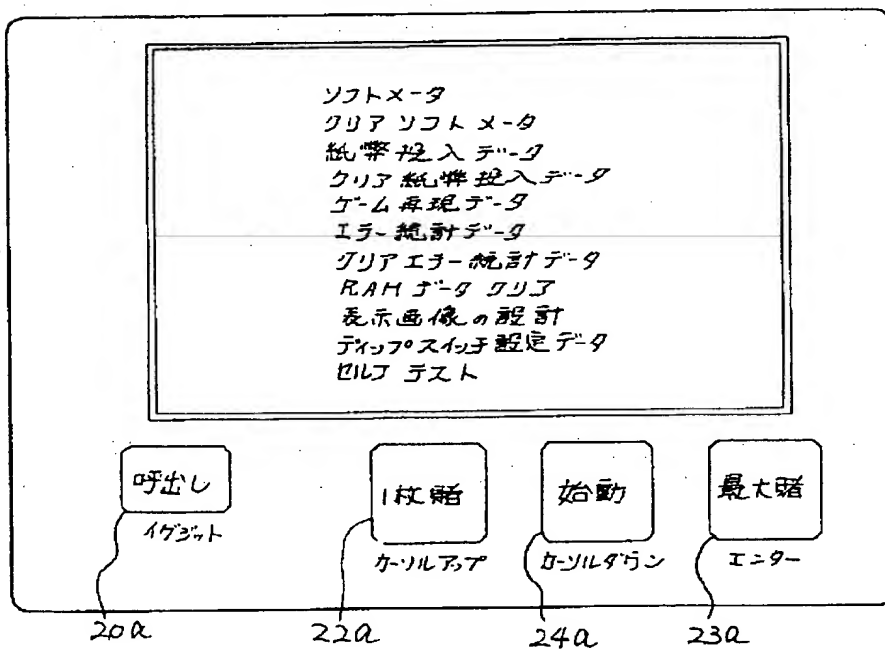 ソフトメータ
クリア ソフト メータ
紙幣投入データ
クリア 紙幣投入データ
ゲーム再現データ
エラー統計データ
クリアエラー統計データ
RAM データ クリア
表示画像の設計
ディップスイッチ設定データ
セルフ テスト
呼出し
1枚賭
始動
最大賭
イグジット
カーソルアップ
カーソルダウン
エンター
20a
22a
24a
23a